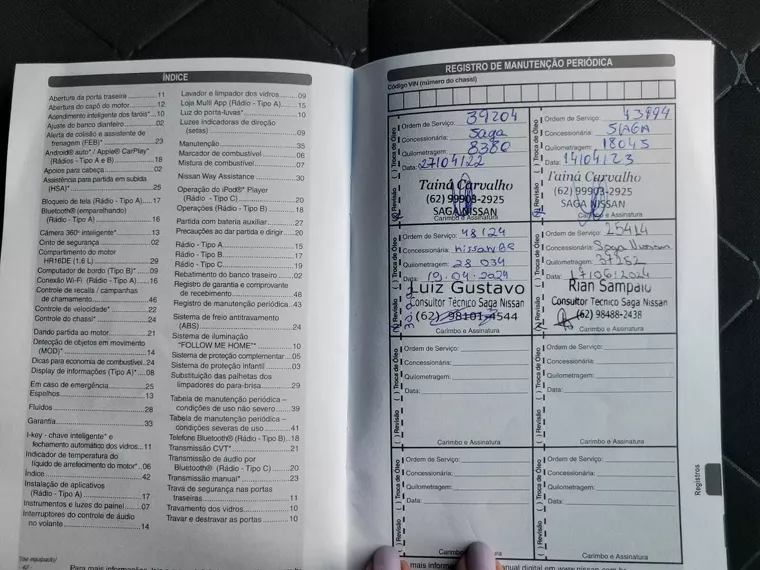 ÍNDICE
Abertura da porta traseira ............... 11
Abertura do capô do motor .............. 12
Acendimento inteligente dos faróis* .. 10
Ajuste do banco dianteiro ............... 02
Alerta de colisão e assistente de
frenagem (FEB)* ............... 23
Android® auto* / Apple® CarPlay*
(Rádios - Tipo A e B) ............... 18
Apoios para cabeça ............... 02
Assistência para partida em subida
(HSA)* ............... 25
Bloqueio de tela (Rádio - Tipo A) ..... 17
Bluetooth® (emparelhando)
(Rádio - Tipo A) ............... 16
Câmera 360° inteligente* ............... 13
Cinto de segurança ............... 02
Compartimento do motor
HR16DE (1.6 L) ............... 29
Computador de bordo (Tipo B)* ..... 09
Conexão Wi-Fi (Rádio - Tipo A) ..... 16
Controle de recalla / campanhas
de chamamento ............... 46
Controle de velocidade* ............... 22
Controle do chassi* ............... 24
Dando partida ao motor ............... 21
Detecção de objetos em movimento
(MOD)* ............... 14
Dicas para economia de combustível . 24
Display de informações (Tipo A)* .... 08
Em caso de emergência ............... 25
Espelhos ............... 13
Fluidos ............... 28
Garantia ............... 33
I-key - chave inteligente* e
fechamento automático dos vidros ... 11
Indicador de temperatura do
líquido de arrefecimento do motor* .. 06
Índice ............... 42
Instalação de aplicativos
(Rádio - Tipo A) ............... 17
Instrumentos e luzes do painel ....... 07
Interruptores do controle de áudio
no volante ............... 14
Lavador e limpador dos vidros ....... 09
Loja Multi App (Rádio - Tipo A) ....... 15
Luz do porta-luvas* ............... 10
Luzes indicadoras de direção
(setas) ............... 09
Manutenção ............... 35
Marcador de combustível ............... 06
Mistura de combustível ............... 07
Nissan Way Assistance ............... 30
Operação do iPod®* Player
(Rádio - Tipo C) ............... 20
Operações (Rádio - Tipo B) ............... 18
Partida com bateria auxiliar ............... 27
Precauções ao dar partida e dirigir .... 20
Rádio - Tipo A ............... 15
Rádio - Tipo B ............... 17
Rádio - Tipo C ............... 19
Rebatimento do banco traseiro ....... 02
Registro de garantia e comprovante
de recebimento ............... 48
Registro de manutenção periódica .. 43
Sistema de freio antitravamento
(ABS) ............... 24
Sistema de iluminação
"FOLLOW ME HOME"* ............... 10
Sistema de proteção complementar ... 05
Sistema de proteção infantil ........... 03
Substituição das palhetas dos
limpadores do para-brisa ............... 29
Tabela de manutenção periódica –
condições de uso não severo ....... 39
Tabela de manutenção periódica –
condições severas de uso ............... 41
Telefone Bluetooth® (Rádio - Tipo B) .. 18
Transmissão CVT* ............... 21
Transmissão de áudio por
Bluetooth® (Rádio - Tipo C) ........... 20
Transmissão manual* ............... 23
Trava de segurança nas portas
traseiras ............... 11
Travamento dos vidros ............... 10
Travar e destravar as portas ........... 10
*(se equipado)
- 42 -
REGISTRO DE MANUTENÇÃO PERIÓDICA
Código VIN (número do chassi)
( ) Revisão ( ) Troca de Óleo
Ordem de Serviço: 39204
Concessionária: Saga
Quilometragem: 8380
Data: 27104122
Tainá Carvalho
(62) 99903-2925
SAGA NISSAN
Carimbo e Assinatura
Ordem de Serviço:
Concessionária: SAGA
Quilometragem: 18045
Data: 14104123
Tainá Carvalho
(62) 99903-2925
SAGA NISSAN
Carimbo e Assinatura
Ordem de Serviço: 48124
Concessionária:
Quilometragem: 28 034
Data: 19.04.2024
Luiz Gustavo
Consultor Técnico Saga Nissan
(62) 98101-4544
Carimbo e Assinatura
Ordem de Serviço: 25414
Concessionária: Saga Nissan
Quilometragem:
Data: 1710612024
Rian Sampaio
Consultor Técnico Saga Nissan
(62) 98488-2438
Carimbo e Assinatura
( ) Revisão ( ) Troca de Óleo
Ordem de Serviço:
Concessionária:
Quilometragem:
Data:
Carimbo e Assinatura
( ) Revisão ( ) Troca de Óleo
Ordem de Serviço:
Concessionária:
Quilometragem:
Data:
Carimbo e Assinatura
( ) Revisão ( ) Troca de Óleo
Ordem de Serviço:
Concessionária:
Quilometragem:
Data:
( ) Revisão ( ) Troca de Óleo
Ordem de Serviço:
Concessionária:
Quilometragem:
Data:
Carimbo e Assinatura
Registros